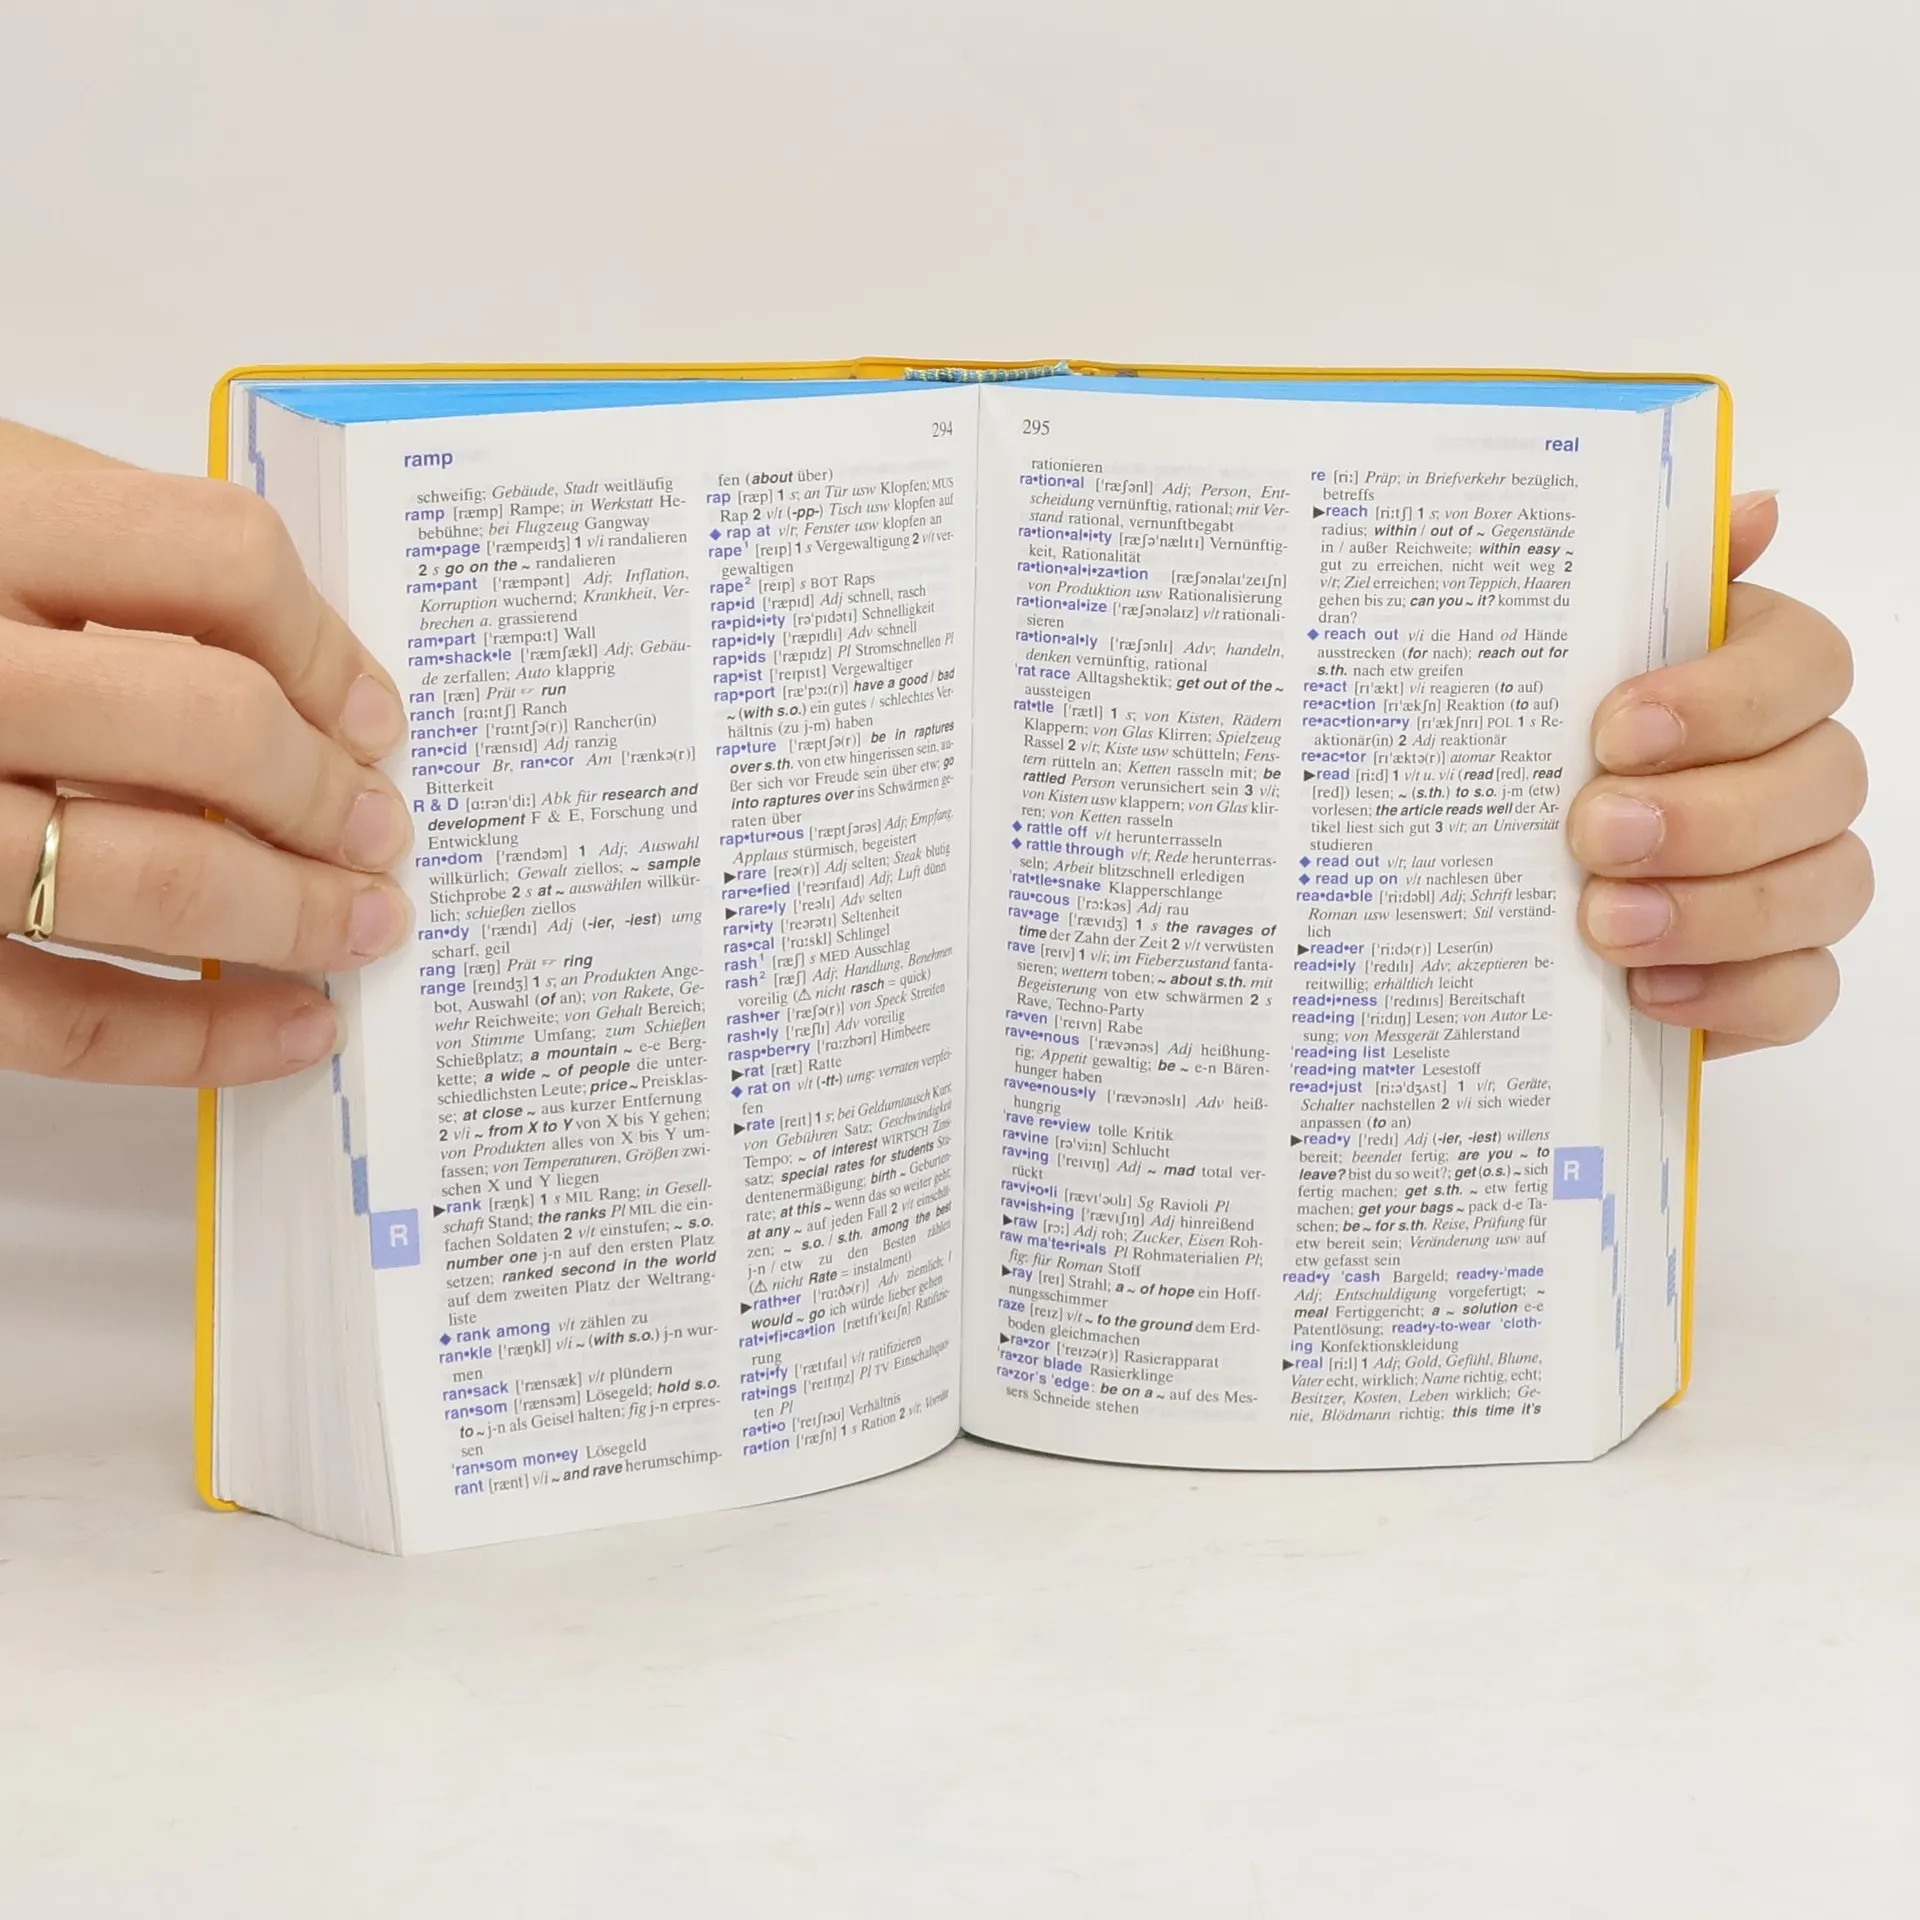 ramp
294
schweifig; Gebäude, Stadt weitläufig
ramp [ræmp] Rampe; in Werkstatt He-
bebühne; bei Flugzeug Gangway
ram•page ['ræmpeɪdʒ] 1 v/i randalieren
2 s go on the ~ randalieren
ram•pant ['ræmpənt] Adj; Inflation,
Korruption wuchernd; Krankheit, Ver-
brechen a. grassierend
ram•part ['ræmpɑːt] Wall
ram•shack•le ['ræmʃækl] Adj; Gebäu-
de zerfallen; Auto klapprig
ran [ræn] Prät ☞ run
ranch [rɑːntʃ] Ranch
ranch•er ['rɑːntʃə(r)] Rancher(in)
ran•cid ['rænsɪd] Adj ranzig
ran•cour Br, ran•cor Am ['ræŋkə(r)]
Bitterkeit
R & D [ɑːrən'diː] Abk für research and
development F & E, Forschung und
Entwicklung
ran•dom ['rændəm] 1 Adj; Auswahl
willkürlich; Gewalt ziellos; ~ sample
Stichprobe 2 s at ~ auswählen willkür-
lich; schießen ziellos
ran•dy ['rændɪ] Adj (-ier, -iest) umg
scharf, geil
rang [ræŋ] Prät ☞ ring
range [reɪndʒ] 1 s; an Produkten Ange-
bot, Auswahl (of an); von Rakete, Ge-
wehr Reichweite; von Gehalt Bereich;
von Stimme Umfang; zum Schießen
Schießplatz; a mountain ~ e-e Berg-
kette; a wide ~ of people die unter-
schiedlichsten Leute; price ~ Preisklas-
se; at close ~ aus kurzer Entfernung
2 v/i ~ from X to Y von X bis Y gehen;
von Produkten alles von X bis Y um-
fassen; von Temperaturen, Größen zwi-
schen X und Y liegen
▶rank [ræŋk] 1 s MIL Rang; in Gesell-
schaft Stand; the ranks Pl MIL die ein-
fachen Soldaten 2 v/t einstufen; ~ s.o.
number one j-n auf den ersten Platz
setzen; ranked second in the world
auf dem zweiten Platz der Weltrang-
liste
◆ rank among v/t zählen zu
ran•kle ['ræŋkl] v/i ~ (with s.o.) j-n wur-
men
ran•sack ['rænsæk] v/t plündern
ran•som ['rænsəm] Lösegeld; hold s.o.
to ~ j-n als Geisel halten; fig j-n erpres-
sen
'ran•som mon•ey Lösegeld
rant [rænt] v/i ~ and rave herumschimp-
R
fen (about über)
rap [ræp] 1 s; an Tür usw Klopfen; MUS
Rap 2 v/t (-pp-) Tisch usw klopfen auf
◆ rap at v/t; Fenster usw klopfen an
rape¹ [reɪp] 1 s Vergewaltigung 2 v/t ver-
gewaltigen
rape² [reɪp] s BOT Raps
rap•id ['ræpɪd] Adj schnell, rasch
ra•pid•i•ty [rə'pɪdətɪ] Schnelligkeit
rap•id•ly ['ræpɪdlɪ] Adv schnell
rap•ids ['ræpɪdz] Pl Stromschnellen Pl
rap•ist ['reɪpɪst] Vergewaltiger
rap•port [ræ'pɔː(r)] have a good / bad
~ (with s.o.) ein gutes / schlechtes Ver-
hältnis (zu j-m) haben
rap•ture ['ræptʃə(r)] be in raptures
over s.th. von etw hingerissen sein, au-
ßer sich vor Freude sein über etw; go
into raptures over ins Schwärmen ge-
raten über
rap•tur•ous ['ræptʃərəs] Adj; Empfang,
Applaus stürmisch, begeistert
▶rare [reə(r)] Adj selten; Steak blutig
rar•e•fied ['reərɪfaɪd] Adj; Luft dünn
▶rare•ly ['reəlɪ] Adv selten
rar•i•ty ['reərətɪ] Seltenheit
ras•cal ['rɑːskl] Schlingel
rash¹ [ræʃ] s MED Ausschlag
rash² [ræʃ] Adj; Handlung, Benehmen
voreilig (⚠ nicht rasch = quick)
rash•er ['ræʃə(r)] von Speck Streifen
rash•ly ['ræʃlɪ] Adv voreilig
rasp•ber•ry ['rɑːzbərɪ] Himbeere
▶rat [ræt] Ratte
◆ rat on v/t (-tt-) umg: verraten verpfei-
fen
▶rate [reɪt] 1 s; bei Geldumtausch Kurs;
von Gebühren Satz; Geschwindigkeit
Tempo; ~ of interest WIRTSCH Zins-
satz; special rates for students Stu-
dentenermäßigung; birth ~ Geburten-
rate; at this ~ wenn das so weiter geht;
at any ~ auf jeden Fall 2 v/t einschät-
zen; ~ s.o. / s.th. among the best
j-n / etw zu den Besten zählen
(⚠ nicht Rate = instalment)
▶rath•er ['rɑːðə(r)] Adv ziemlich; I
would ~ go ich würde lieber gehen
rat•i•fi•ca•tion [rætɪfɪ'keɪʃn] Ratifizie-
rung
rat•i•fy ['rætɪfaɪ] v/t ratifizieren
rat•ings ['reɪtɪŋz] Pl TV Einschaltquo-
ten Pl
ra•ti•o ['reɪʃɪəʊ] Verhältnis
ra•tion ['ræʃn] 1 s Ration 2 v/t; Vorräte
295
real
rationieren
ra•tion•al ['ræʃənl] Adj; Person, Ent-
scheidung vernünftig, rational; mit Ver-
stand rational, vernunftbegabt
ra•tion•al•i•ty [ræʃə'nælɪtɪ] Vernünftig-
keit, Rationalität
ra•tion•al•i•za•tion [ræʃənəlaɪ'zeɪʃn]
von Produktion usw Rationalisierung
ra•tion•al•ize ['ræʃənəlaɪz] v/t rationali-
sieren
ra•tion•al•ly ['ræʃənlɪ] Adv; handeln,
denken vernünftig, rational
'rat race Alltagshektik; get out of the ~
aussteigen
rat•tle ['rætl] 1 s; von Kisten, Rädern
Klappern; von Glas Klirren; Spielzeug
Rassel 2 v/t; Kiste usw schütteln; Fens-
tern rütteln an; Ketten rasseln mit; be
rattled Person verunsichert sein 3 v/i;
von Kisten usw klappern; von Glas klir-
ren; von Ketten rasseln
◆ rattle off v/t herunterrasseln
◆ rattle through v/t; Rede herunterras-
seln; Arbeit blitzschnell erledigen
'rat•tle•snake Klapperschlange
rau•cous ['rɔːkəs] Adj rau
rav•age ['rævɪdʒ] 1 s the ravages of
time der Zahn der Zeit 2 v/t verwüsten
rave [reɪv] 1 v/i; im Fieberzustand fanta-
sieren; wettern toben; ~ about s.th. mit
Begeisterung von etw schwärmen 2 s
Rave, Techno-Party
ra•ven ['reɪvn] Rabe
rav•e•nous ['rævənəs] Adj heißhung-
rig; Appetit gewaltig; be ~ e-n Bären-
hunger haben
rav•e•nous•ly ['rævənəslɪ] Adv heiß-
hungrig
'rave re•view tolle Kritik
ra•vine [rə'viːn] Schlucht
rav•ing ['reɪvɪŋ] Adj ~ mad total ver-
rückt
ra•vi•o•li [rævɪ'əʊlɪ] Sg Ravioli Pl
rav•ish•ing ['rævɪʃɪŋ] Adj hinreißend
▶raw [rɔː] Adj roh; Zucker, Eisen Roh-
raw ma'te•ri•als Pl Rohmaterialien Pl;
fig. für Roman Stoff
▶ray [reɪ] Strahl; a ~ of hope ein Hoff-
nungsschimmer
raze [reɪz] v/t ~ to the ground dem Erd-
boden gleichmachen
▶ra•zor ['reɪzə(r)] Rasierapparat
'ra•zor blade Rasierklinge
ra•zor's 'edge: be on a ~ auf des Mes-
sers Schneide stehen
re [riː] Präp; in Briefverkehr bezüglich,
betreffs
▶reach [riːtʃ] 1 s; von Boxer Aktions-
radius; within / out of ~ Gegenstände
in / außer Reichweite; within easy ~
gut zu erreichen, nicht weit weg 2
v/t; Ziel erreichen; von Teppich, Haaren
gehen bis zu; can you ~ it? kommst du
dran?
◆ reach out v/i die Hand od Hände
ausstrecken (for nach); reach out for
s.th. nach etw greifen
re•act [rɪ'ækt] v/i reagieren (to auf)
re•ac•tion [rɪ'ækʃn] Reaktion (to auf)
re•ac•tion•ar•y [rɪ'ækʃnrɪ] POL 1 s Re-
aktionär(in) 2 Adj reaktionär
re•ac•tor [rɪ'æktə(r)] atomar Reaktor
▶read [riːd] 1 v/t u. v/i (read [red], read
[red]) lesen; ~ (s.th.) to s.o. j-m (etw)
vorlesen; the article reads well der Ar-
tikel liest sich gut 3 v/t; an Universität
studieren
◆ read out v/t; laut vorlesen
◆ read up on v/t nachlesen über
rea•da•ble ['riːdəbl] Adj; Schrift lesbar;
Roman usw lesenswert; Stil verständ-
lich
▶read•er ['riːdə(r)] Leser(in)
read•i•ly ['redɪlɪ] Adv; akzeptieren be-
reitwillig; erhältlich leicht
read•i•ness ['redɪnɪs] Bereitschaft
read•ing ['riːdɪŋ] Lesen; von Autor Le-
sung; von Messgerät Zählerstand
'read•ing list Leseliste
'read•ing mat•ter Lesestoff
re•ad•just [riːə'dʒʌst] 1 v/t; Geräte,
Schalter nachstellen 2 v/i sich wieder
anpassen (to an)
▶read•y ['redɪ] Adj (-ier, -iest) willens
bereit; beendet fertig; are you ~ to
leave? bist du so weit?; get (o.s.) ~ sich
fertig machen; get s.th. ~ etw fertig
machen; get your bags ~ pack d-e Ta-
schen; be ~ for s.th. Reise, Prüfung für
etw bereit sein; Veränderung usw auf
etw gefasst sein
read•y 'cash Bargeld; read•y-'made
Adj; Entschuldigung vorgefertigt; ~
meal Fertiggericht; a ~ solution e-e
Patentlösung; read•y-to-wear 'cloth-
ing Konfektionskleidung
▶real [riːl] 1 Adj; Gold, Gefühl, Blume,
Vater echt, wirklich; Name richtig, echt;
Besitzer, Kosten, Leben wirklich; Ge-
nie, Blödmann richtig; this time it's
R